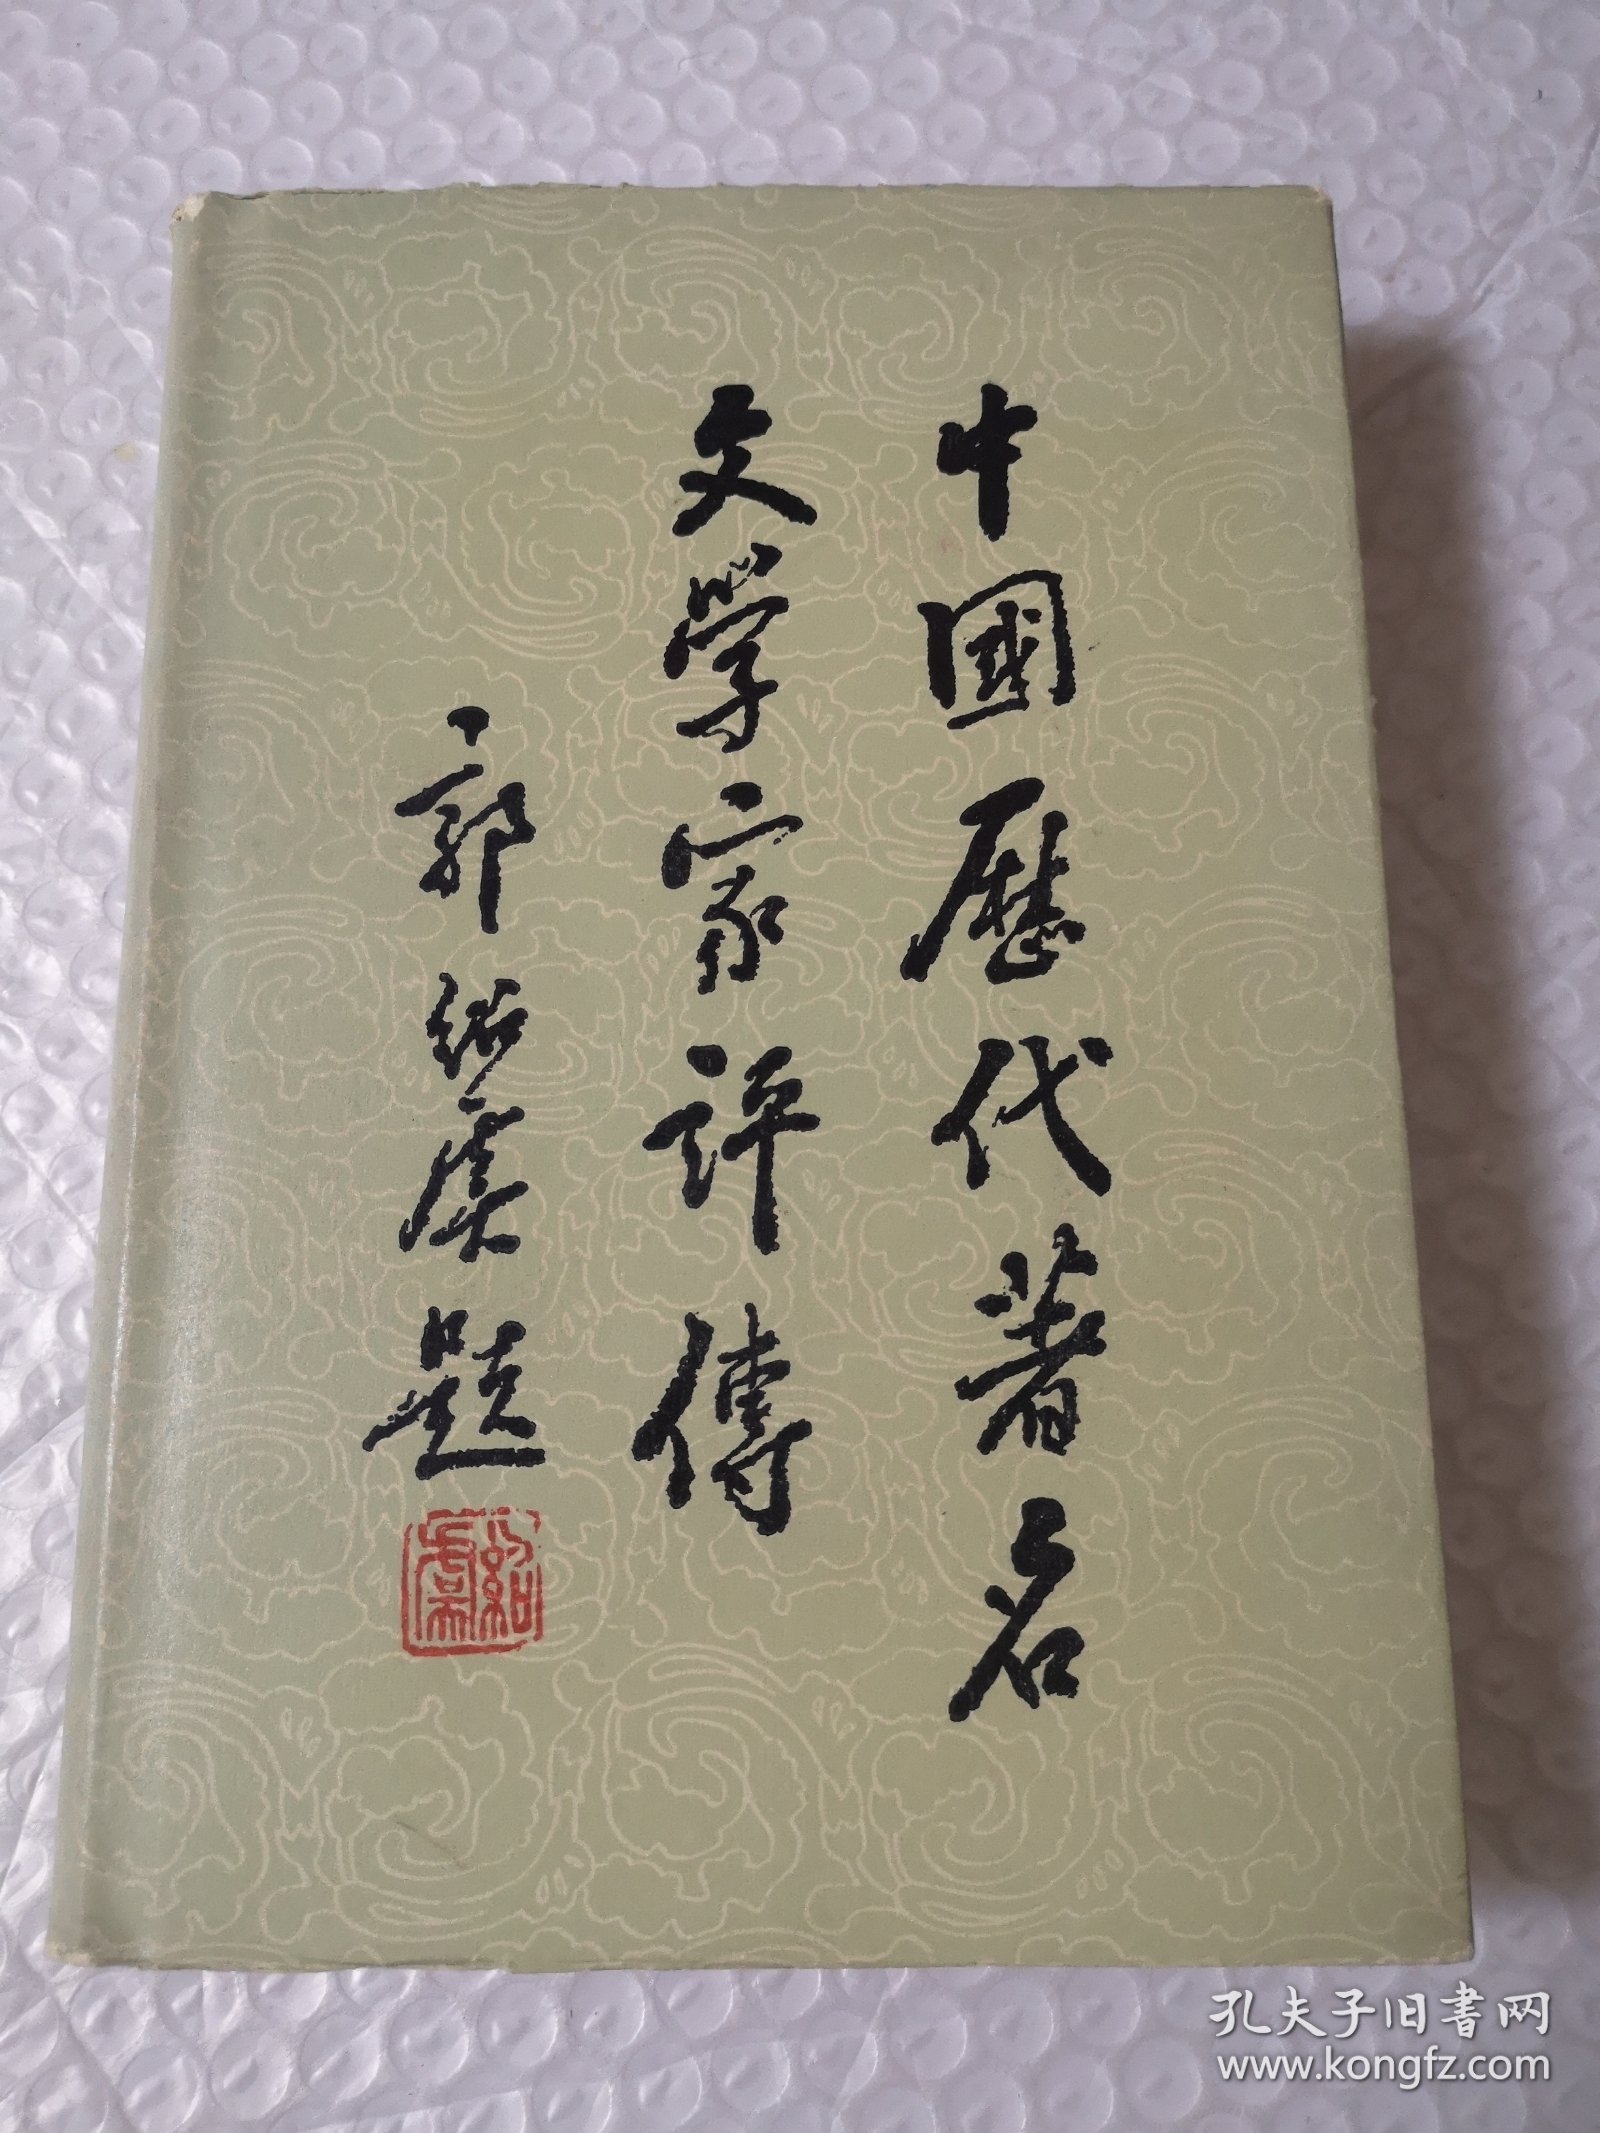 中國歷代著名
文學家評傳
郭紹虞題
紹虞
孔夫子旧书网
www.kongfz.com